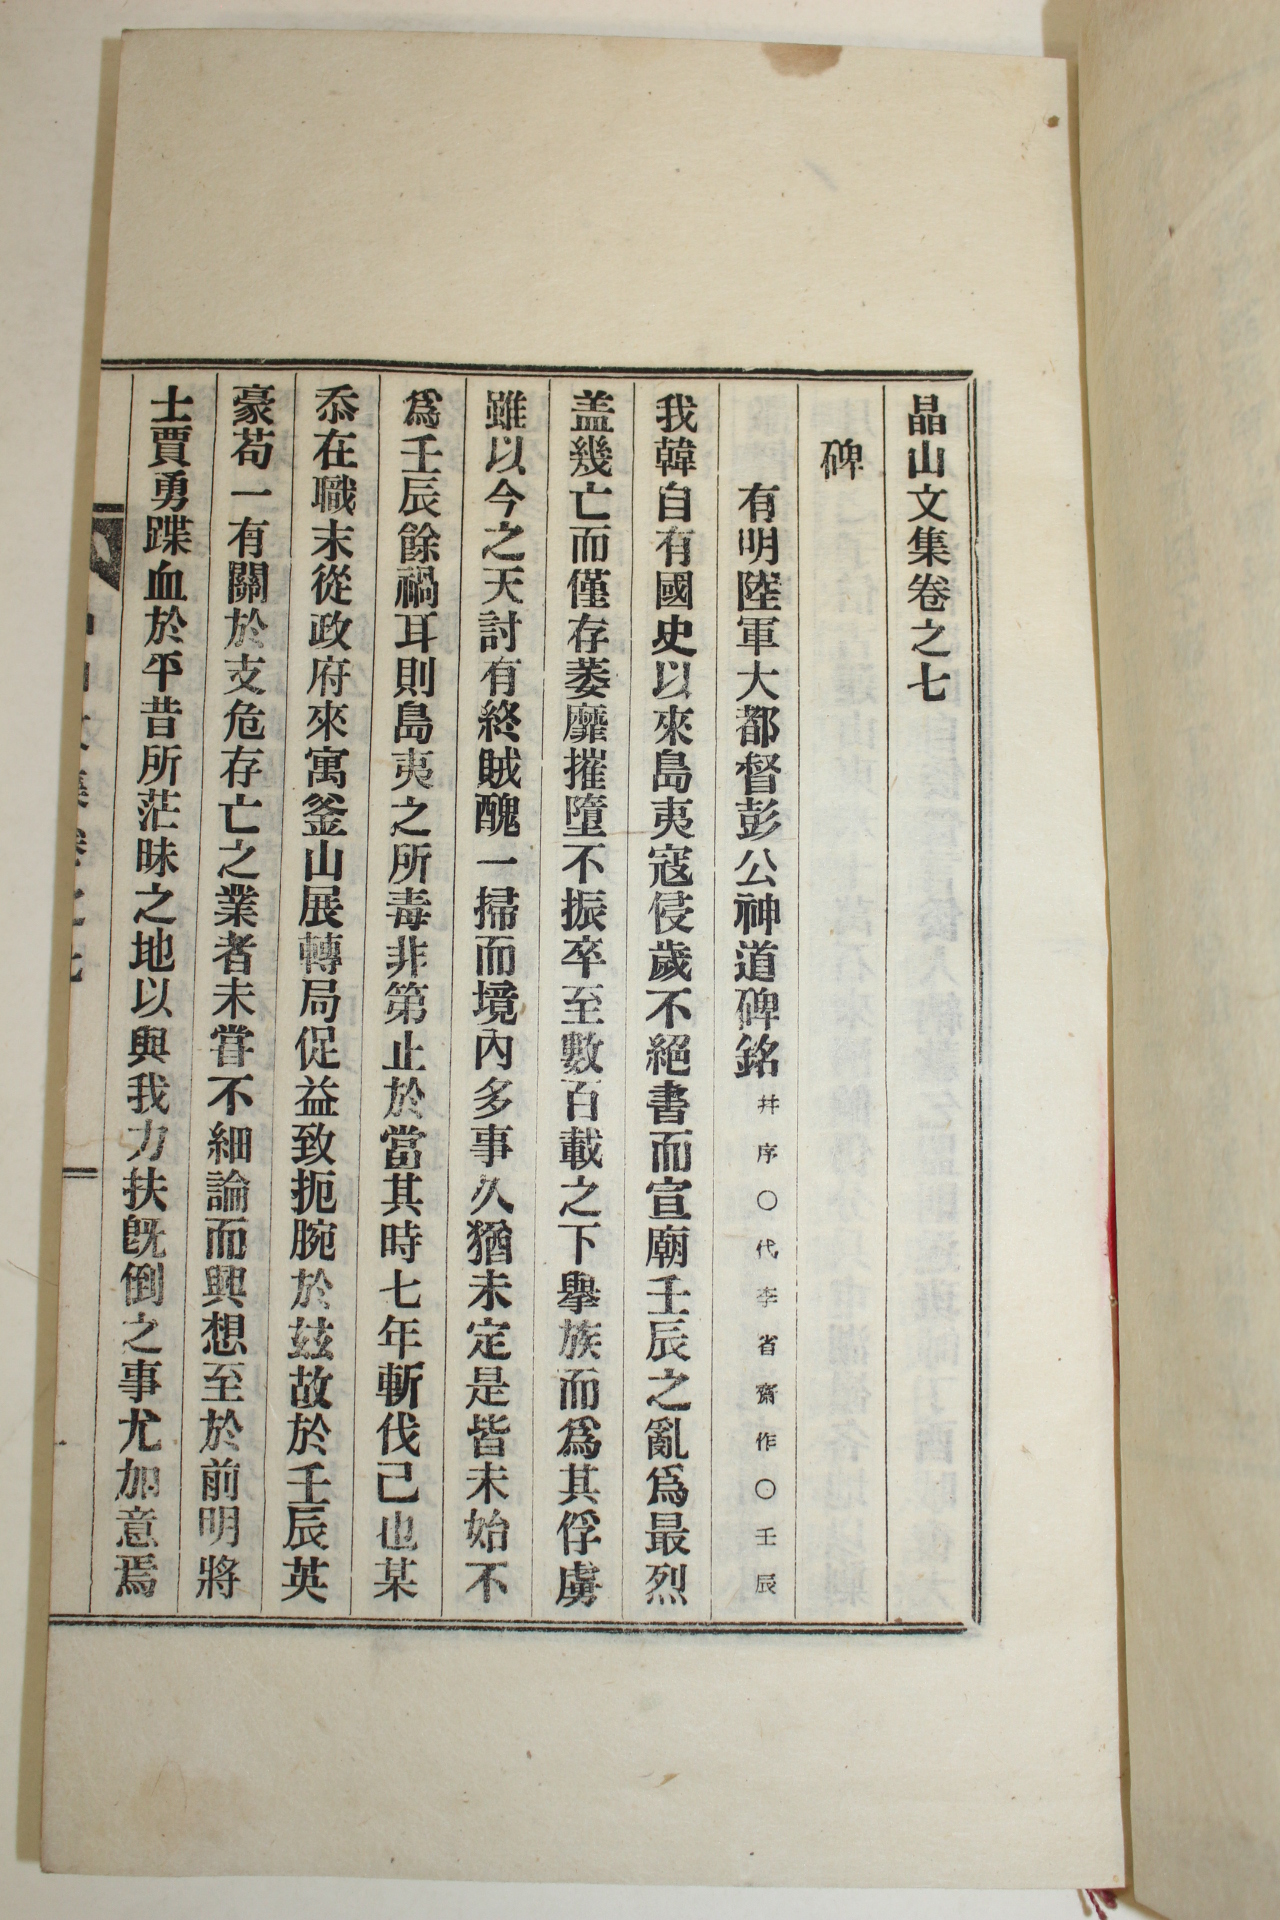 晶山文集卷之七
碑
有明陸軍大都督彭公神道碑銘 幷序○代李省齋作○壬辰
我韓自有國史以來島夷寇侵歲不絕書而宣廟壬辰之亂爲最烈
盖幾亡而僅存萎靡摧墮不振卒至數百載之下擧族而爲其俘虜
雖以今之天討有終賊醜一掃而境內多事久猶未定是皆未始不
爲壬辰餘禍耳則島夷之所毒非第止於當其時七年斬伐己也某
忝在職末從政府來寓釜山展轉局促益致扼腕於玆故於壬辰英
豪苟一有關於支危存亡之業者未甞不細論而興想至於前明將
士賈勇蹀血於平昔所茫昧之地以與我力扶旣倒之事尤加意焉
晶山文集卷之七